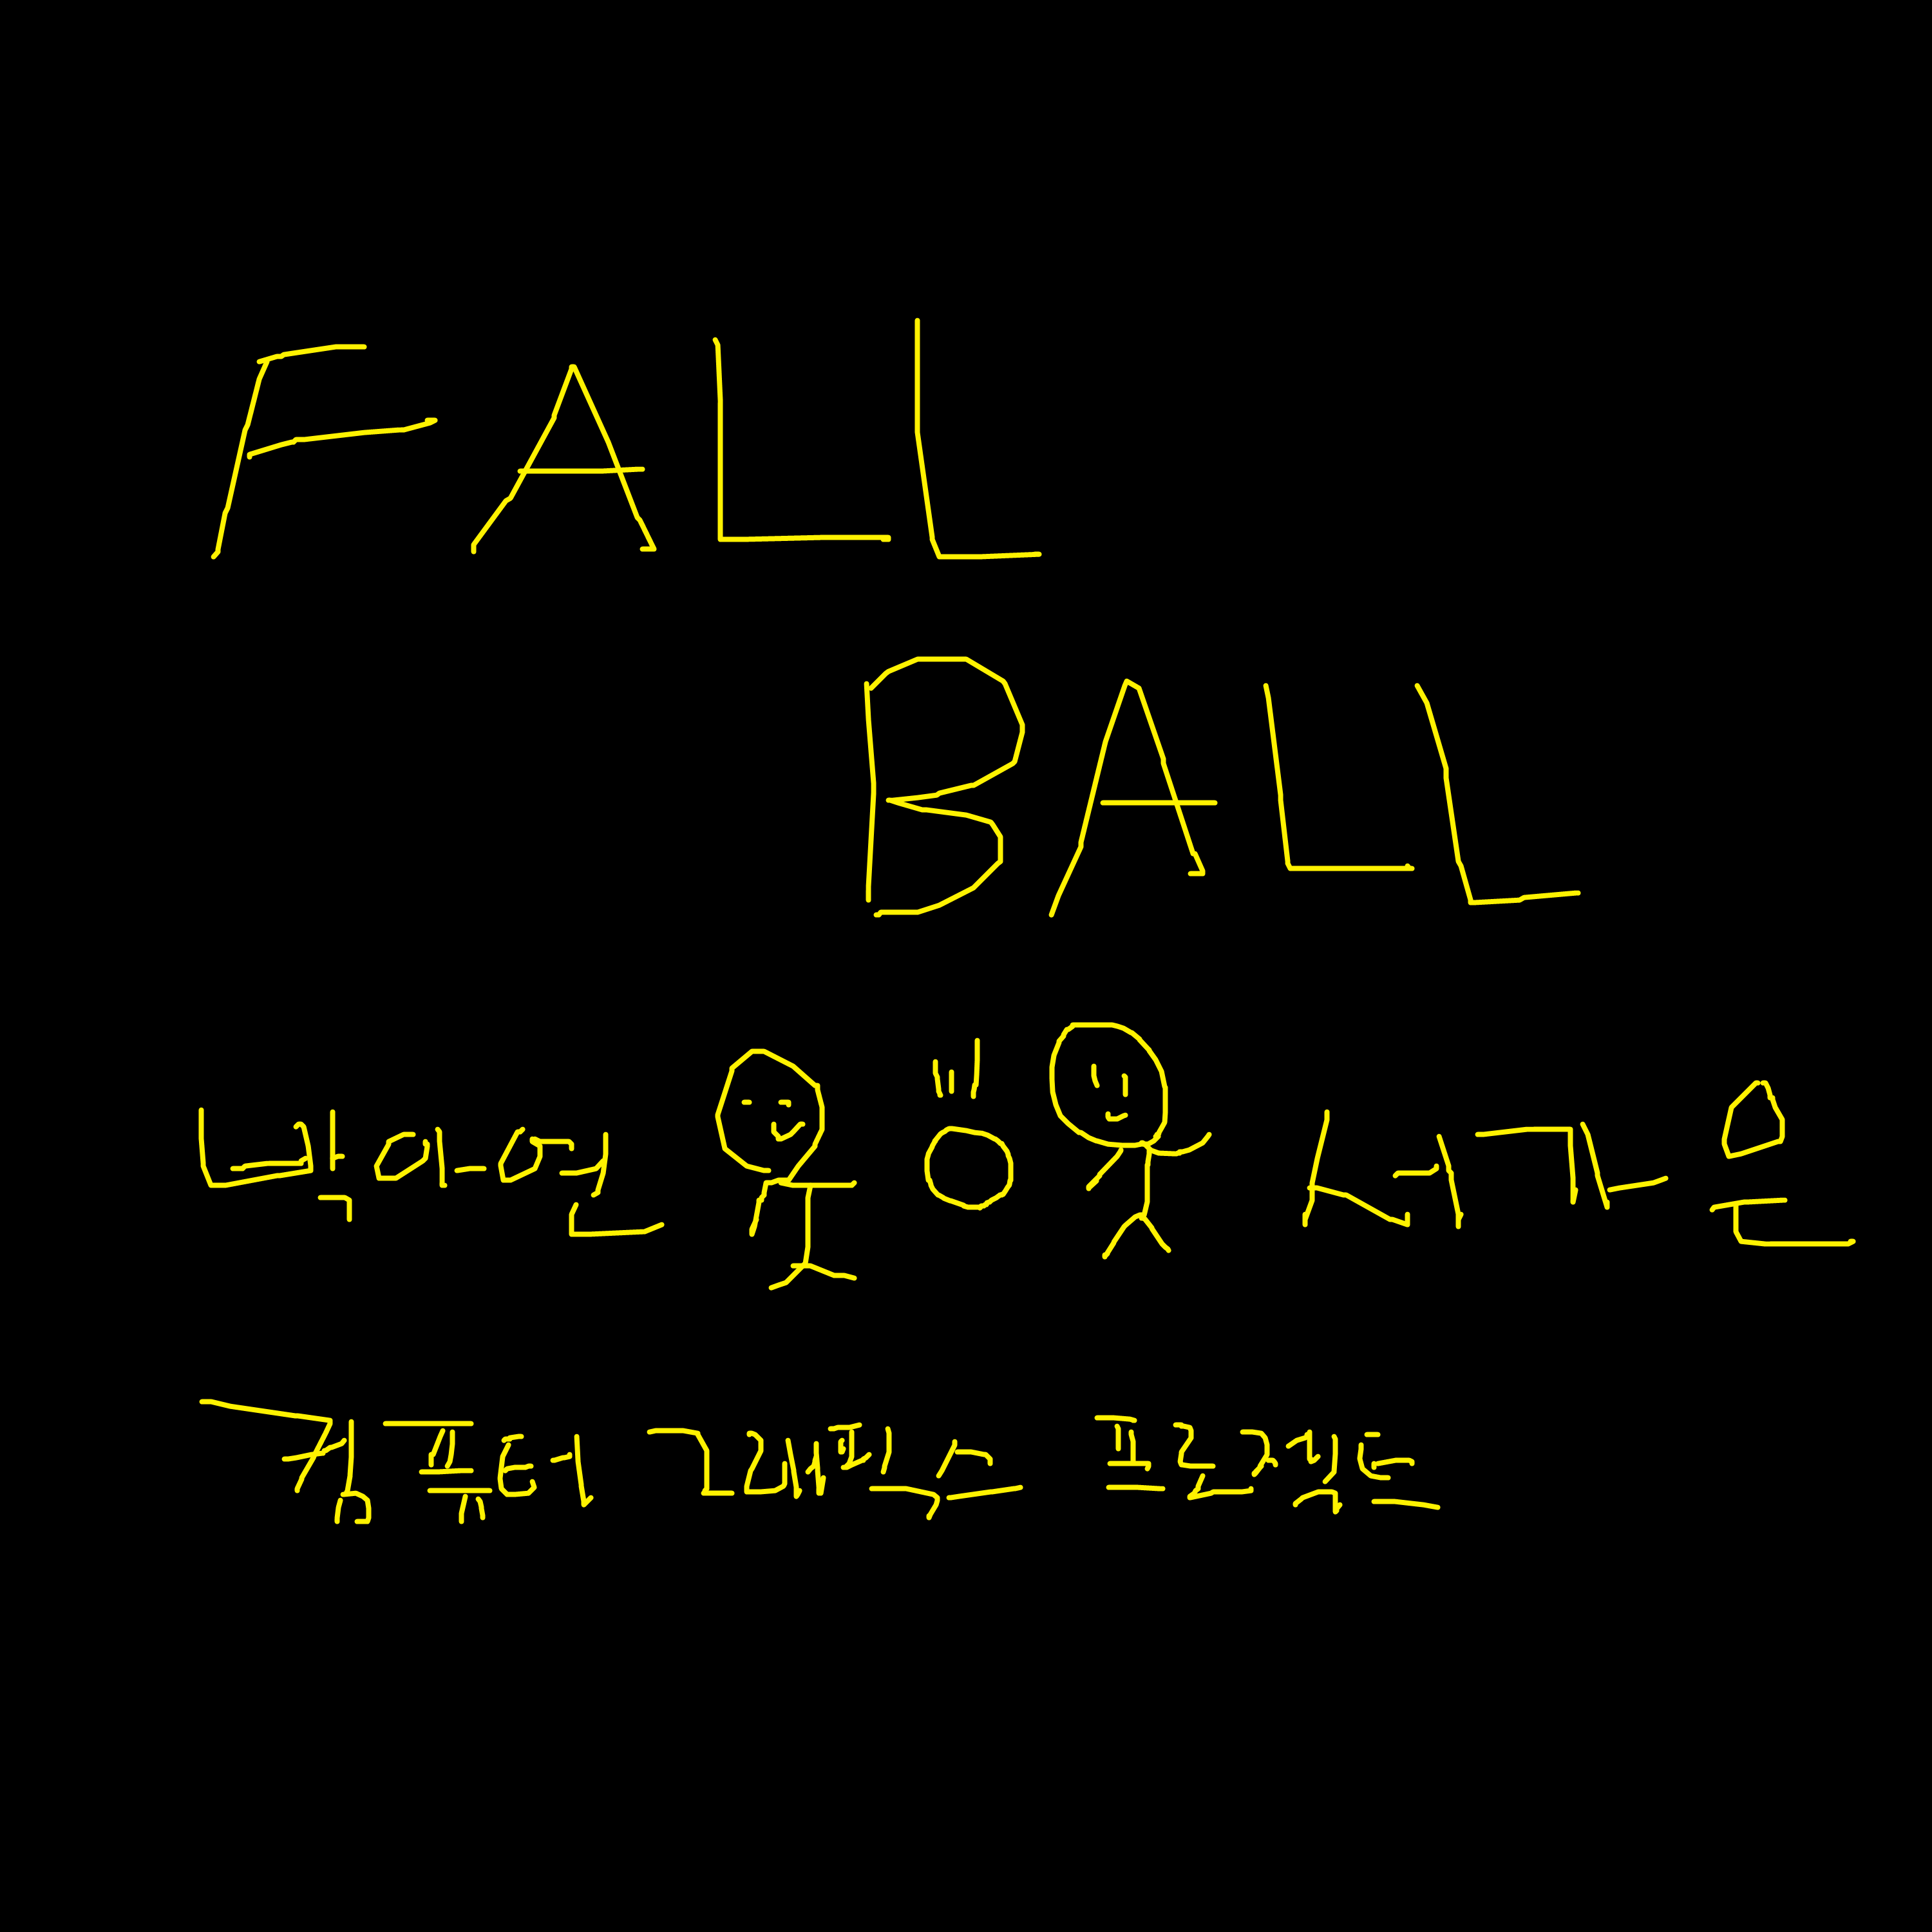 FALL
BALL
박아연 서가은
컴퓨터 그래픽스 프로젝트